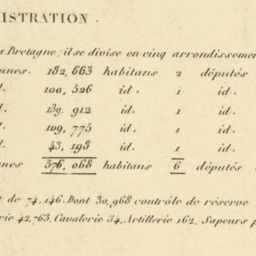 ISTRATION.
Bretagne; il se divise en cinq arrondissemen
nes. 182,663 habitans 2 députés
d. 100,526 id. 1 id.
d. 139.912 id. 1 id.
d. 109,775 id. 1 id.
d. 43,195 id. 1 id.
nes 576,068 habitans 6 députés
t de 74,146. Dont 30,968 contrôle de réserve
rie 42,763, Cavalerie 34, Artillerie 162, Sapeurs p